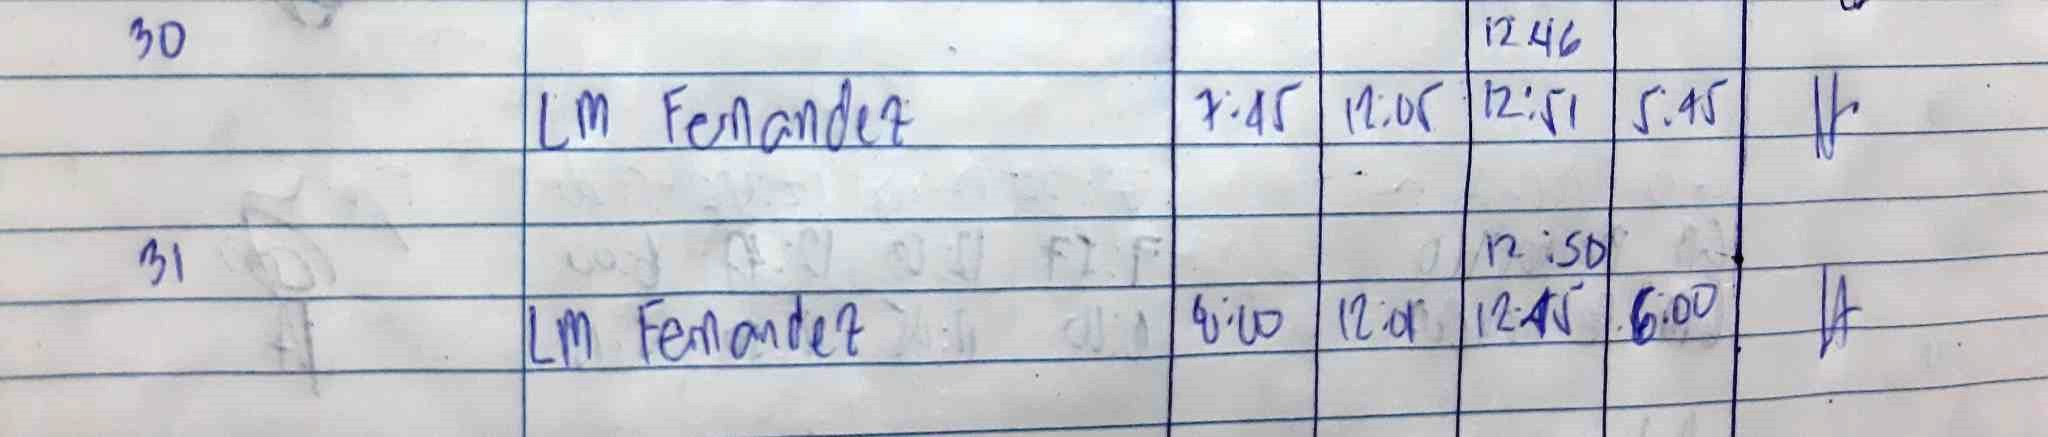 30 12:46
LM Fernandez 7:45 12:05 12:51 5:45
31 12:50
LM Fernandez 12:45 6:00